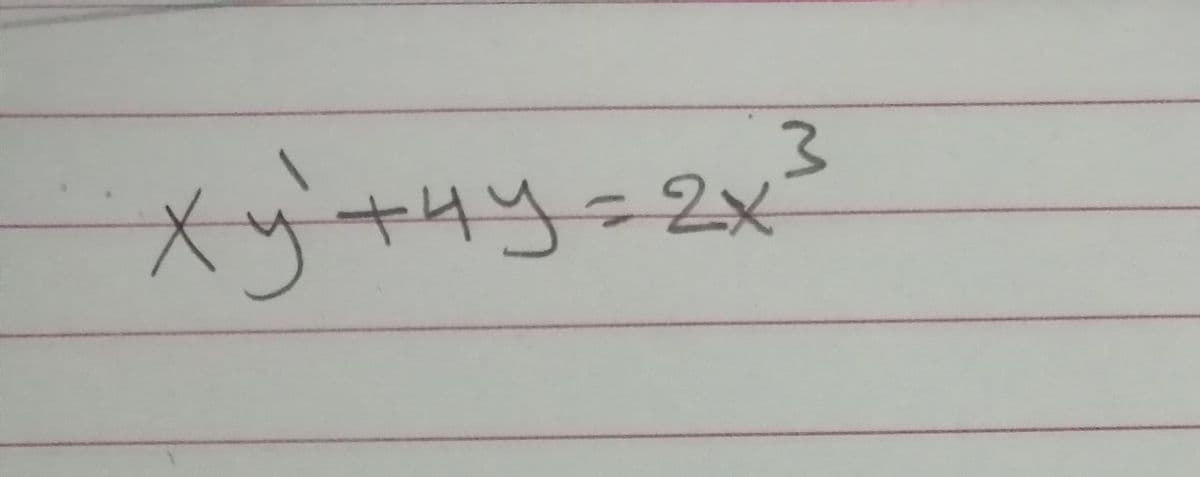 xy'+4y=2x³